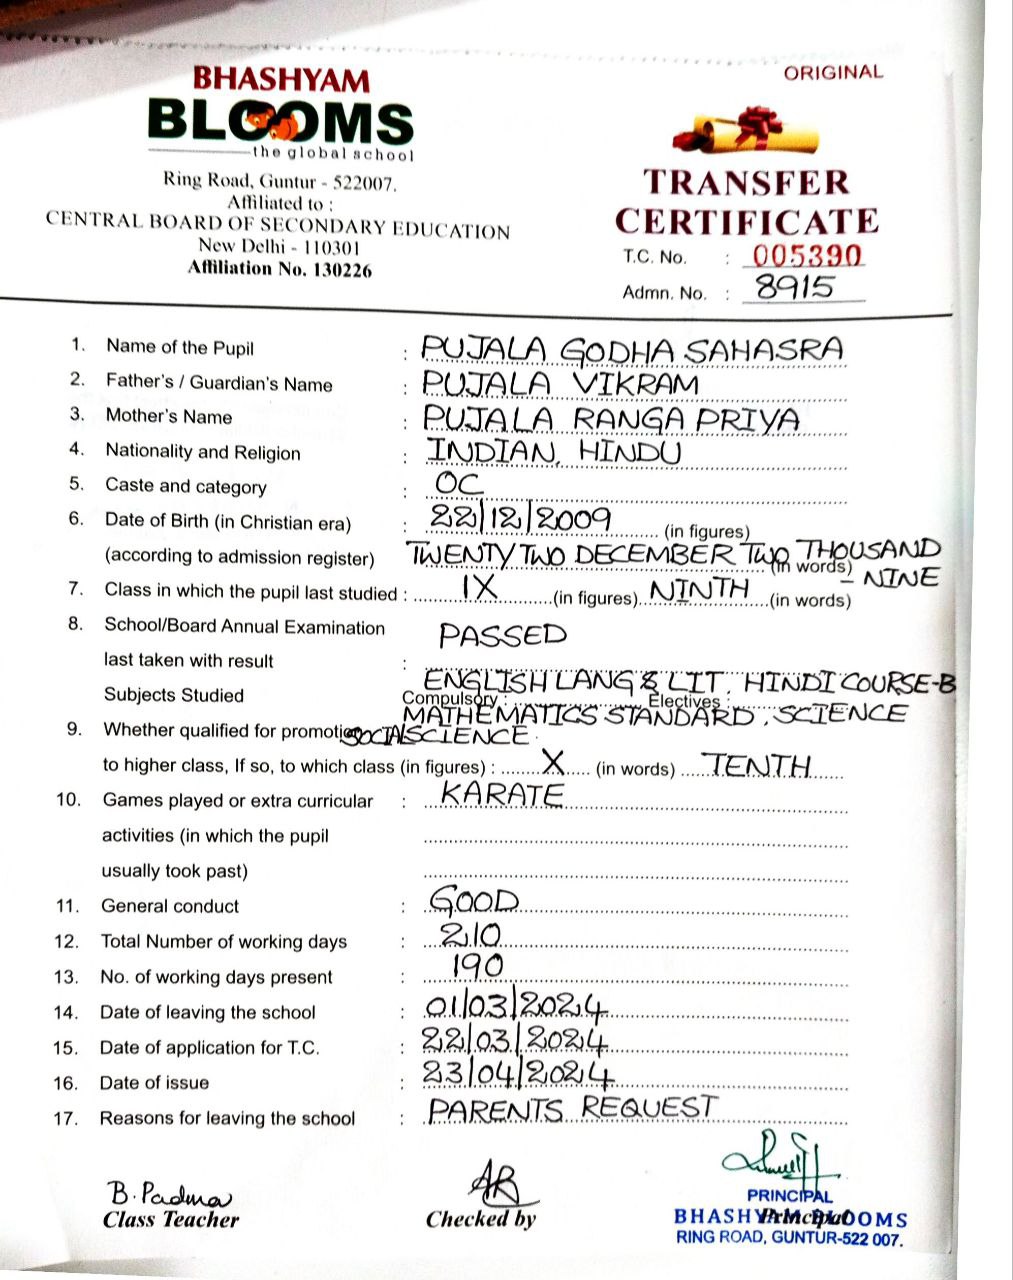 ORIGINAL
BHASHYAM
BLOOMS
the global school
Ring Road, Guntur - 522007.
Affiliated to :
CENTRAL BOARD OF SECONDARY EDUCATION
New Delhi - 110301
Affiliation No. 130226
TRANSFER
CERTIFICATE
T.C. No. : 005390
Admn. No. : 8915
1. Name of the Pupil : PUJALA GODHA SAHASRA
2. Father's / Guardian's Name : PUJALA VIKRAM
3. Mother's Name : PUJALA RANGA PRIYA
4. Nationality and Religion : INDIAN, HINDU
5. Caste and category : OC
6. Date of Birth (in Christian era) : 22/12/2009 (in figures)
(according to admission register) TWENTY TWO DECEMBER TWO THOUSAND (in words)
- NINE
7. Class in which the pupil last studied : IX (in figures) NINTH (in words)
8. School/Board Annual Examination PASSED
last taken with result :
ENGLISH LANG & LIT, HINDI COURSE-B
Subjects Studied Compulsory : Electives :
MATHEMATICS STANDARD, SCIENCE
9. Whether qualified for promotion SOCIAL SCIENCE.
to higher class, If so, to which class (in figures) : X (in words) TENTH
10. Games played or extra curricular : KARATE
activities (in which the pupil
usually took past)
11. General conduct : GOOD
12. Total Number of working days : 210
13. No. of working days present : 190
14. Date of leaving the school : 01/03/2024
15. Date of application for T.C. : 22/03/2024
16. Date of issue : 23/04/2024
17. Reasons for leaving the school : PARENTS REQUEST
B. Padma
Class Teacher
AR
Checked by
PRINCIPAL
Principal
BHASHYAM BLOOMS
RING ROAD, GUNTUR-522 007.